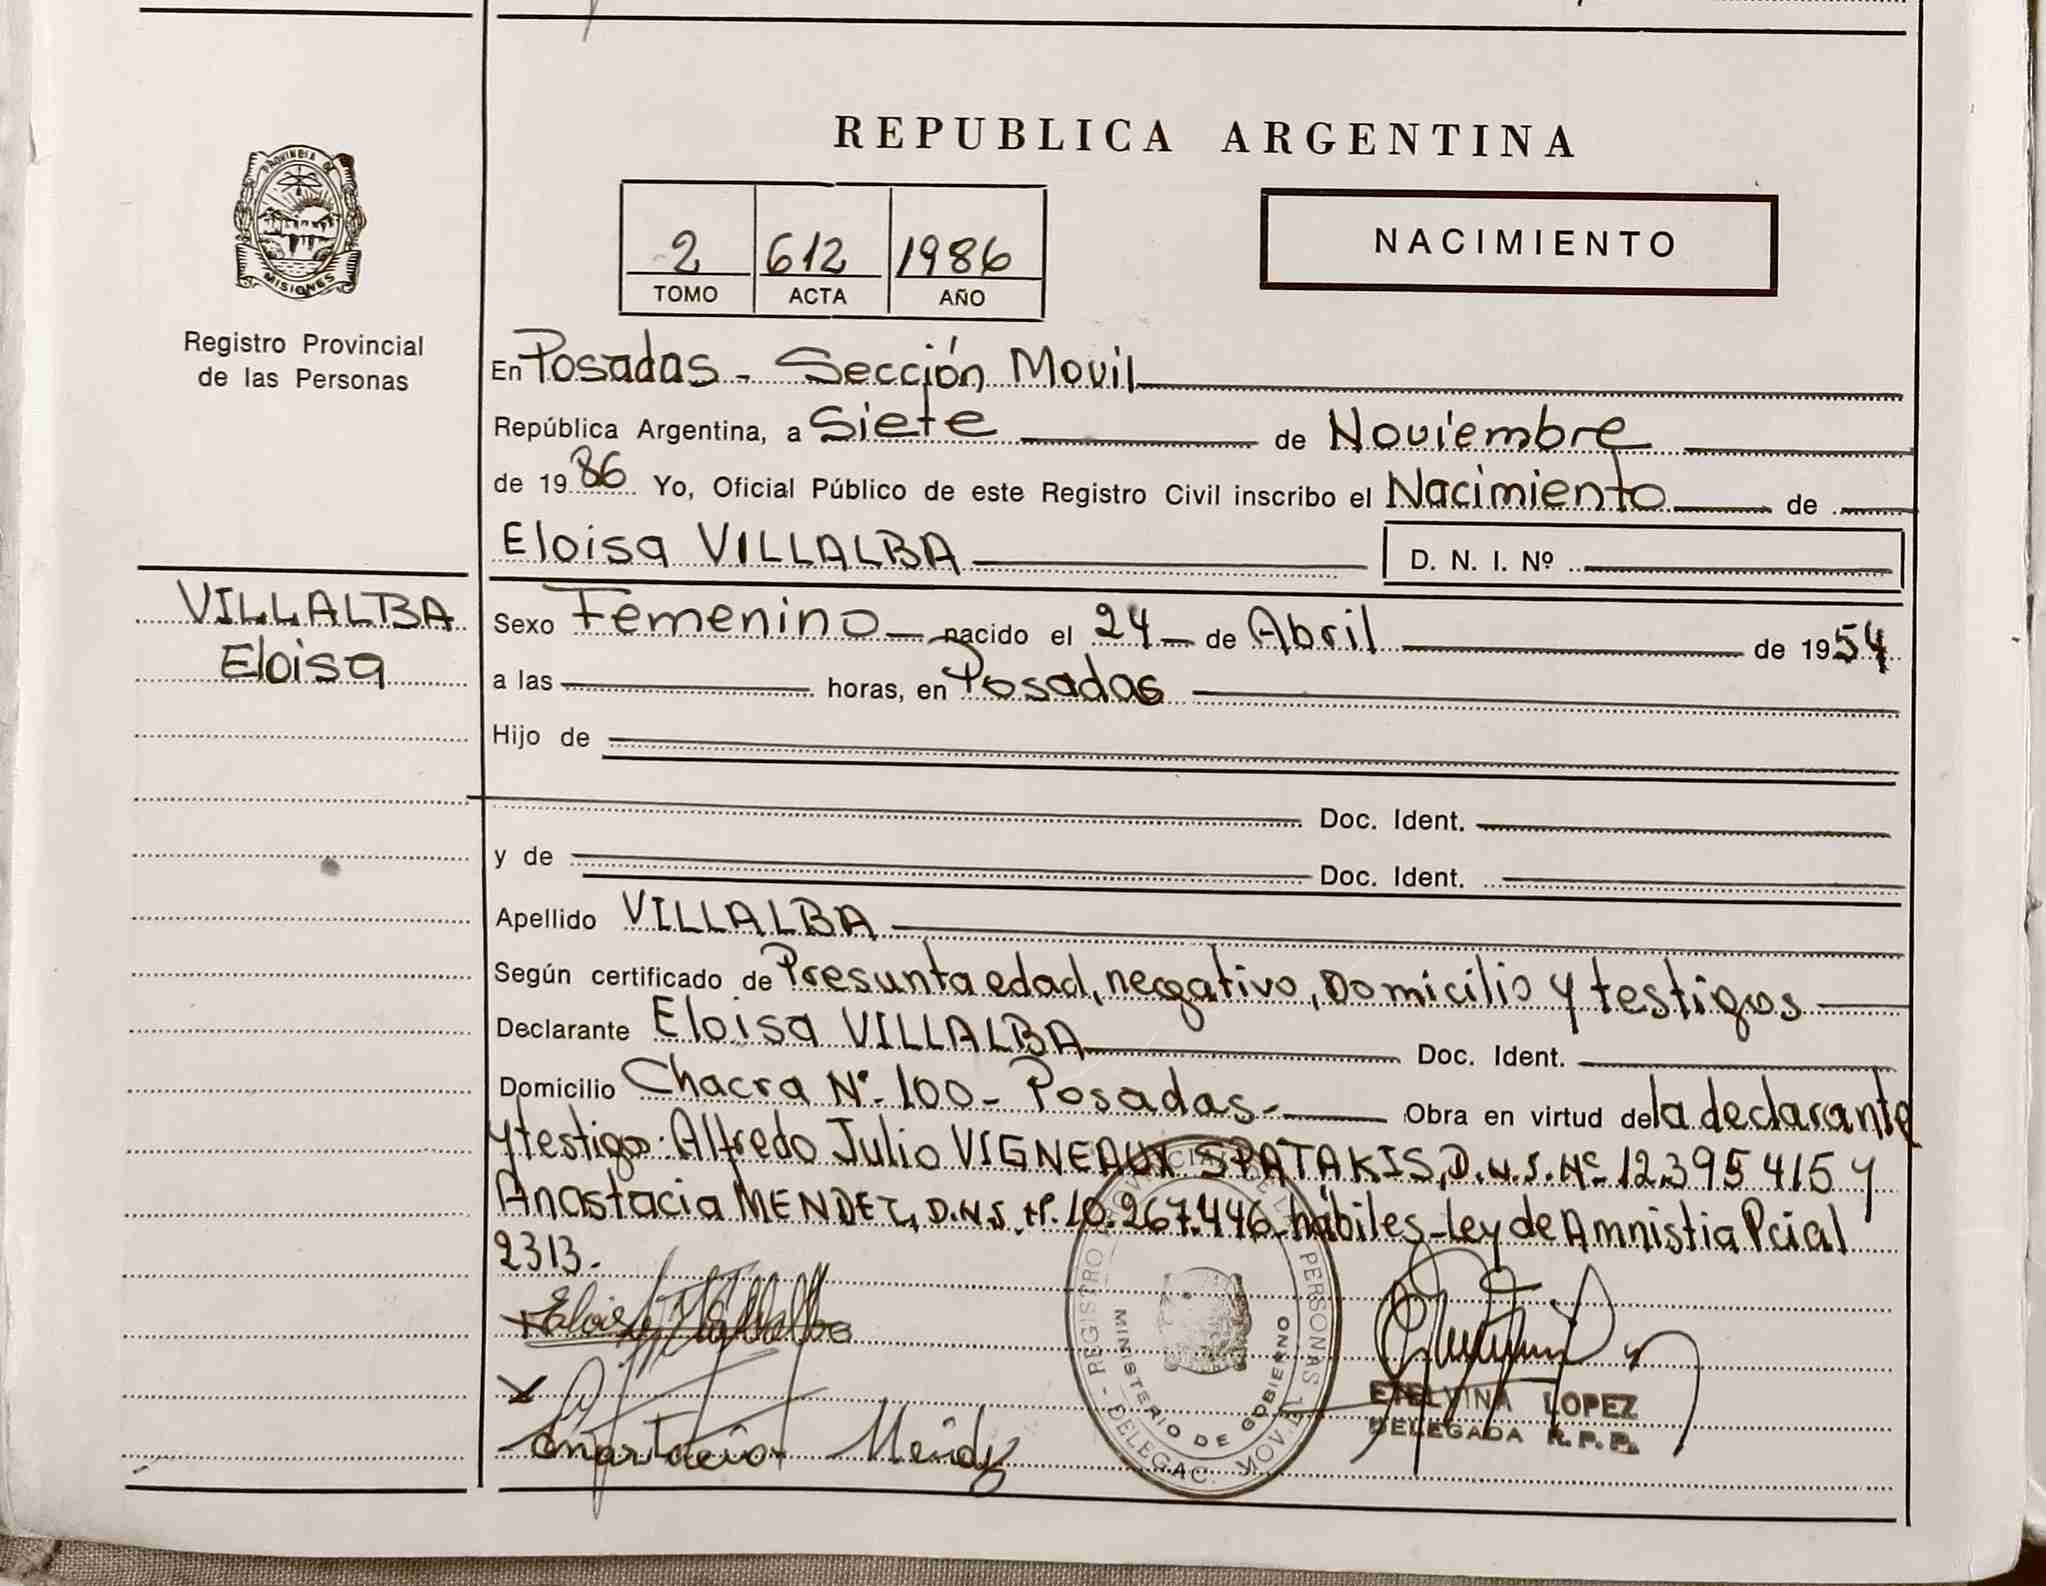 REPUBLICA ARGENTINA
PROVINCIA DE
MISIONES
Registro Provincial
de las Personas
2 612 1986
TOMO ACTA AÑO
NACIMIENTO
En Posadas - Sección Movil
República Argentina, a Siete de Noviembre
de 1986 Yo, Oficial Público de este Registro Civil inscribo el Nacimiento de
Eloisa VILLALBA D. N. I. Nº
VILLALBA
Eloisa
Sexo Femenino nacido el 24 de Abril de 1954
a las horas, en Posadas
Hijo de
Doc. Ident.
y de Doc. Ident.
Apellido VILLALBA
Según certificado de Presunta edad, negativo, Domicilio y testigos
Declarante Eloisa VILLALBA Doc. Ident.
Domicilio Chacra Nº 100 - Posadas - Obra en virtud de la declarante
y testigo: Alfredo Julio VIGNEAUX SPATAKIS, D.N.I. Nº 12.395415 y
Anastacia MENDEZ, D.N.I. Nº. 10.267.446 - hábiles - Ley de Amnistia Pcial
2313.
Eloisa Villalba
Anastacia Mendez
REGISTRO PROVINCIAL DE LAS PERSONAS
MINISTERIO DE GOBIERNO
DELEGAC. MOVIL
ETELVINA LOPEZ
DELEGADA R.P.P.